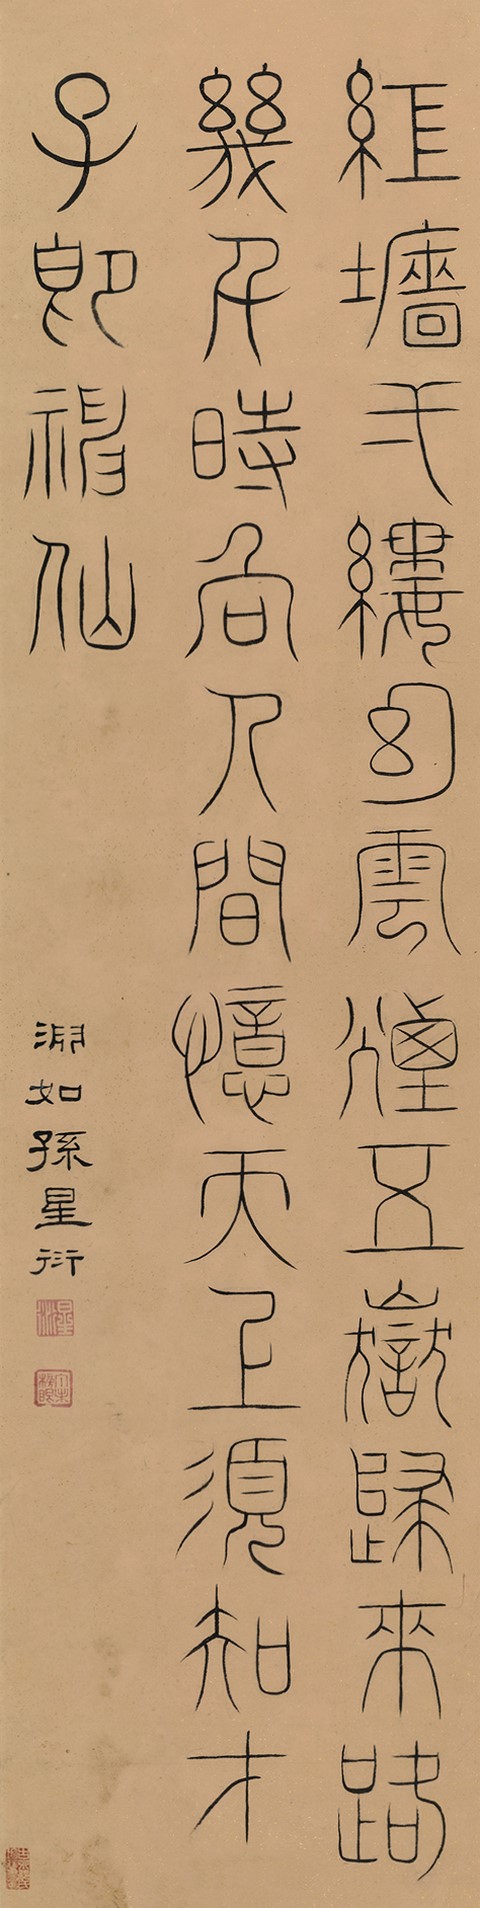 紅墻弌縷幻雲煙五嶽歸來路
幾千時向人間憶天上須知才
子即神仙
淵如孫星衍